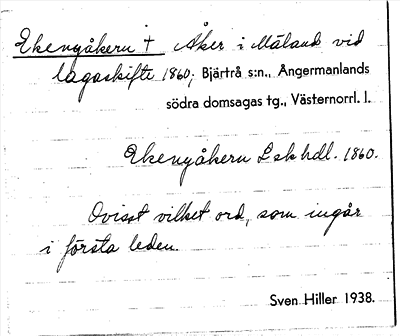 Ekenyåkern † Åker i Mäland vid
lagaskifte 1860; Bjärtrå s:n., Ångermanlands
södra domsagas tg., Västernorrl. l.
Ekenyåkern L sk hdl. 1860.
Ovisst vilket ord, som ingår
i första leden.
Sven Hiller 1938.